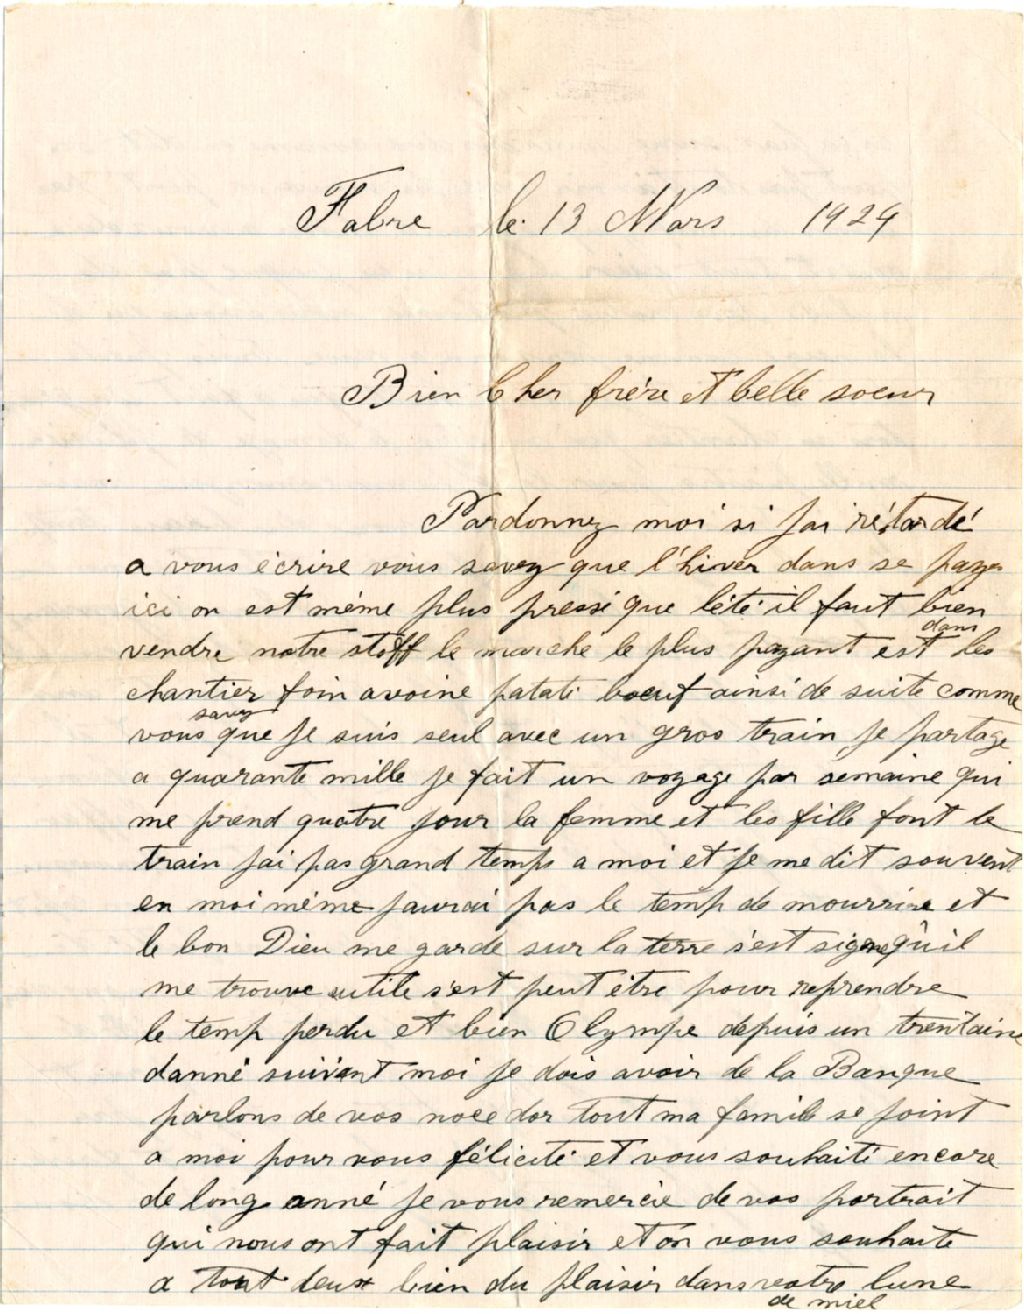 Fabre le 13 Mars 1929
Bien Cher frére et belle soeur
Pardonnez moi si jai rétardé
a vous écrire vous savez que l'hiver dans se pays
ici on est méme plus pressé que l'été il faut bien
vendre notre stoff le marche le plus payant est dans les
chantier foin avoine patati boeuf ainsi de suite comme
vous savez que je suis seul avec un gros train je partage
a quarante mille je fait un voyage par semaine qui
me prend quatre jour la femme et les fille font le
train jai pas grand temps a moi et je me dit souvent
en moi méme jaurai pas le temp de mourrire et
le bon Dieu me garde sur la terre s'est signe qu'il
me trouve utile s'est peut étre pour reprendre
le temp perdu et bien Olympe depuis un trentaine
danné suivant moi je dois avoir de la Banque
parlons de vos noce dor tout ma famile se joint
a moi pour vous félicité et vous souhaité encore
de long anné je vous remercie de vos portrait
qui nous ont fait plaisir et on vous souhaite
a tout deux bien du plaisir dans votre lune
de miel